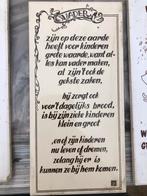 VADER
zijn op deze aarde
heeft voor kinderen
grote waarde, want al-
les kan vader maken,
al zijn 't ook de
gekste zaken,
hij zorgt ook
voor 't dagelijks brood,
is bij zijn zieke kinderen
klein en groot
,en of zijn kinderen
nu leven of dromen,
zolang hij er is
kunnen ze bij hem komen.